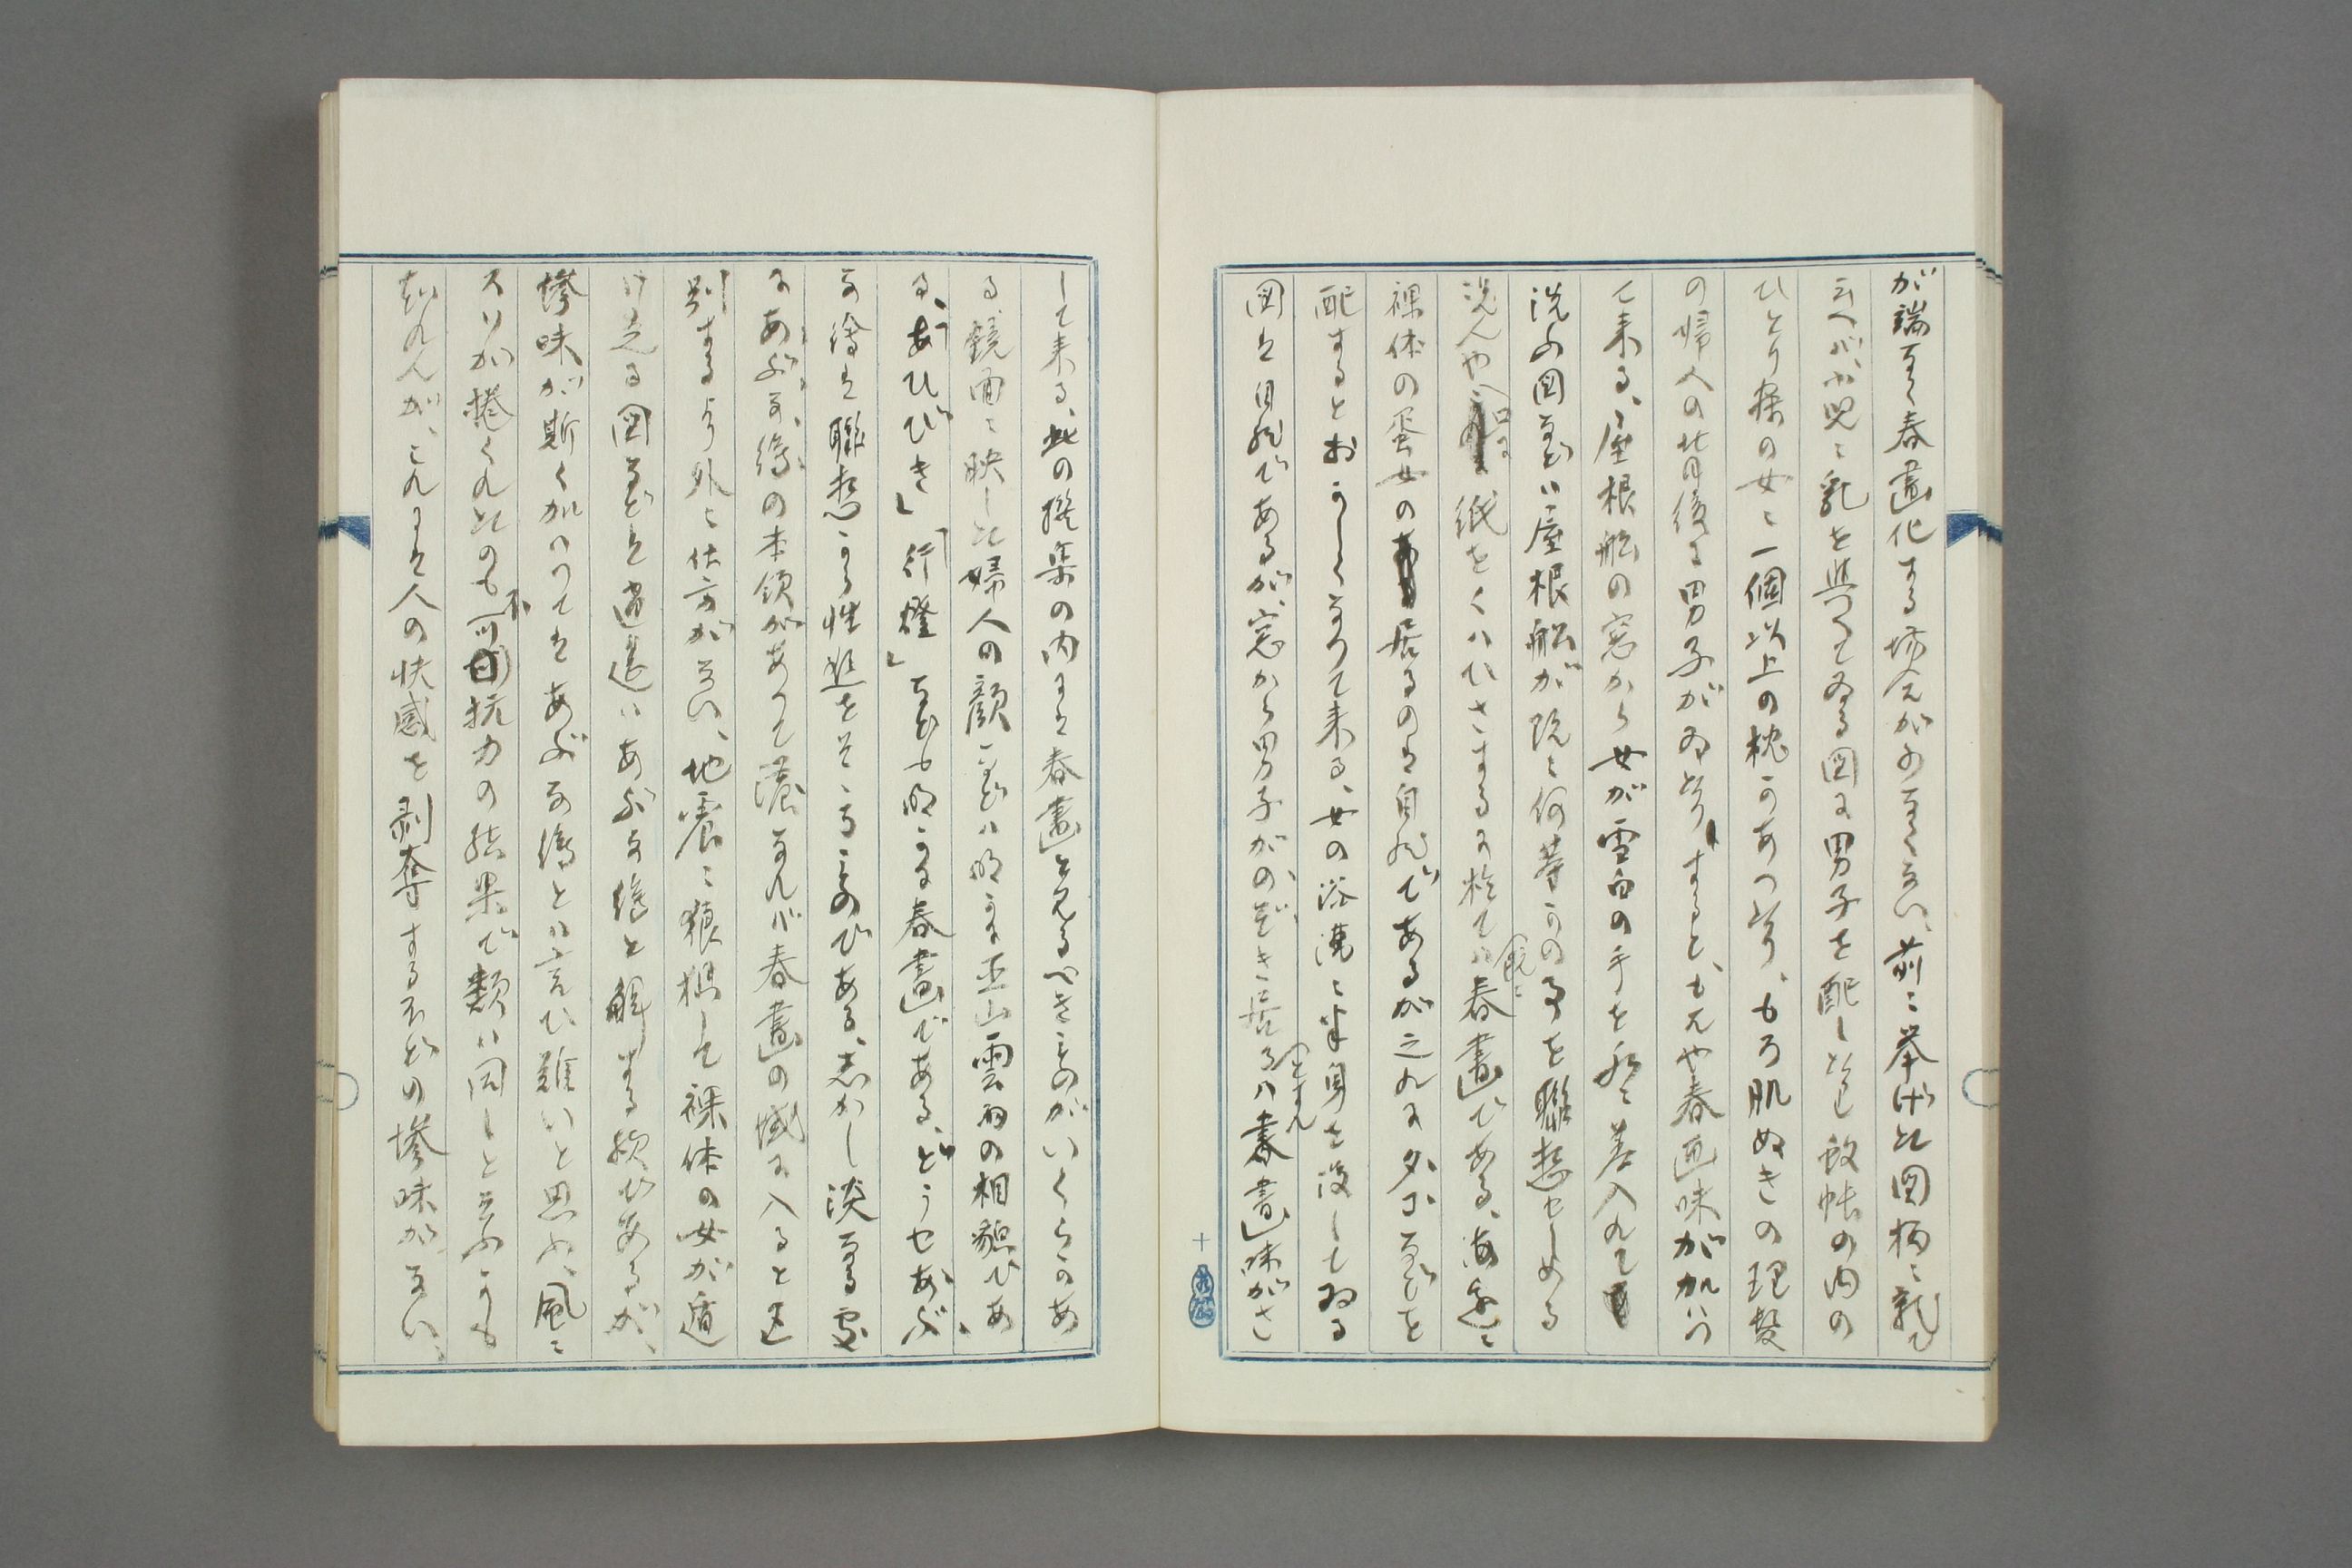 が端なく春畫化する場合が少なくない、前に挙げた図柄に就て
云へば、小児に乳を與へてゐる図に男子を配したり蚊帳の内の
ひとり寐の女に一個以上の枕があつたり、もろ肌ぬきの理髪
の婦人の背後に男子がゐたりすると、もはや春画味が加はつ
て来る、屋根舩の窓から女が雪白の手を水に差入れて
洗ふ図などは屋根舩が既に何等かの事を聯想せしめる
況んや口に紙をくはひさするに於ては既に春畫である、海邊に
裸体の蜑女の居るのは自然であるが之れにタコなどを
配するとおかしくなつて来る、女の浴漕に半身を没してゐる
図は自然であるが、窓から男子がのぞき居るとすれば春畫味がさ
して来る、此の撰集の内には春畫と見るべきものがいくらもあ
る鏡面に映した婦人の顔などは明かに巫山雲雨の相貌であ
る、「あひびき」「行燈」なども明かな春畫である、どうせあぶ
な繪は聯想から性慾をそゝるものである、志かし淡なる處
にあぶな繪の本領があつて濃なれば春畫の域に入ると区
別するより外に仕方がない、地震に狼狽して裸体の女が遁
げ走る図などは普通はあぶな繪と解する様であるが、
惨味が斯く加はつてはあぶな繪とは言ひ難いと思ふ、風に
スソが捲くれたのも不可抗力の結果で類は同しと云ふかも
知れんが、これには人の快感を剥奪するほどの惨味がない、